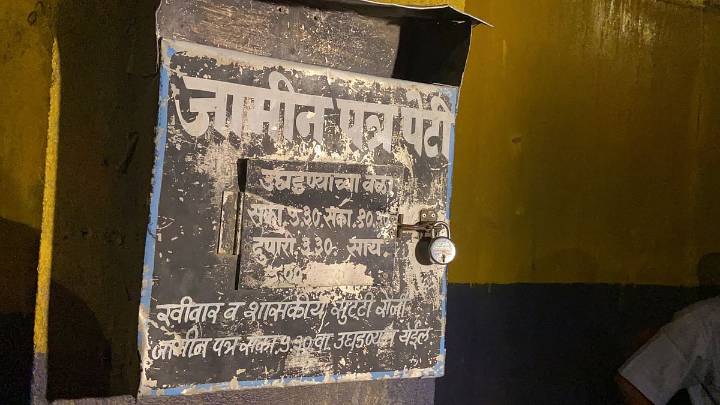 जामीन पत्र पेटी
उघडण्याच्या वेळा
सका. ५.३० सका. १०.
दुपारी ३.३० साय.
रवीवार व शासकीय सुट्टी रोजी
जामीन पत्र सका. ९.३० वा. उघडण्यात येईल